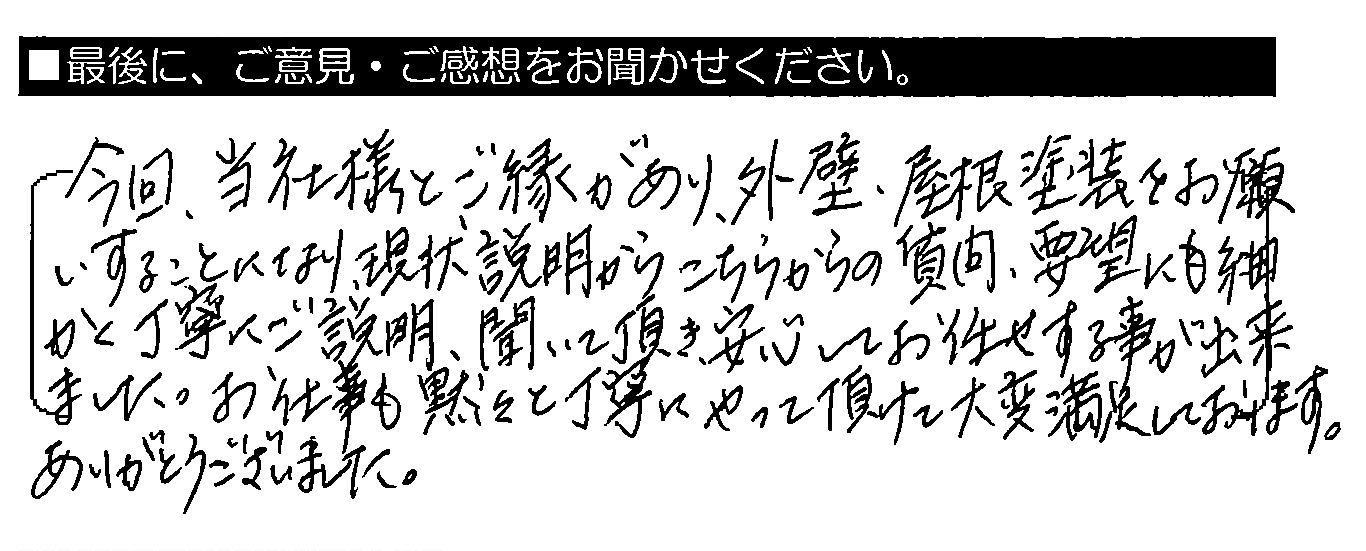 ■最後に、ご意見・ご感想をお聞かせください。
今回、当社様とご縁があり、外壁、屋根塗装をお願
いすることになり、現状説明からこちらからの質問、要望にも細
かく丁寧にご説明、聞いて頂き、安心してお任せする事が出来
ました。お仕事も黙々と丁寧にやって頂けて大変満足しております。
ありがとうございました。